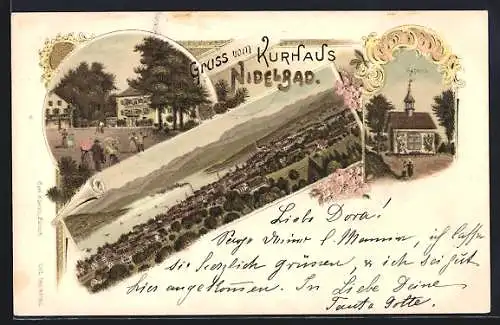 Gruss vom Kurhaus
Nidelbad.
Liebe Dora!
Sage Deiner l. Mamma, ich lasse
sie herzlich grüssen, & ich sei gut
hier angekommen. In Liebe Deine
Tante